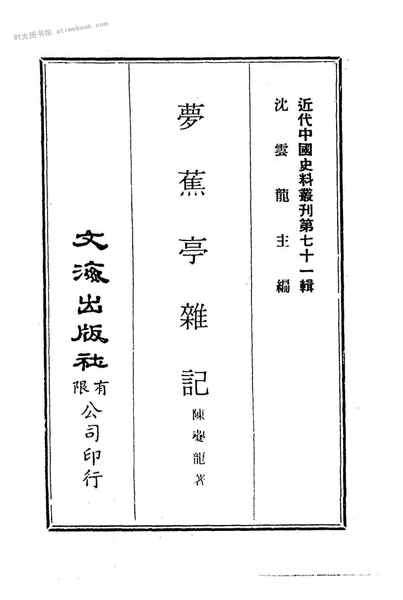 时光图书馆 atimebook.com
近代中國史料叢刊第七十一輯
沈雲龍主編
夢蕉亭雜記
陳夔龍著
文海出版社
有限
公司印行